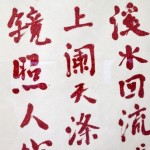 溪水回流
上阑天涤
镜照人